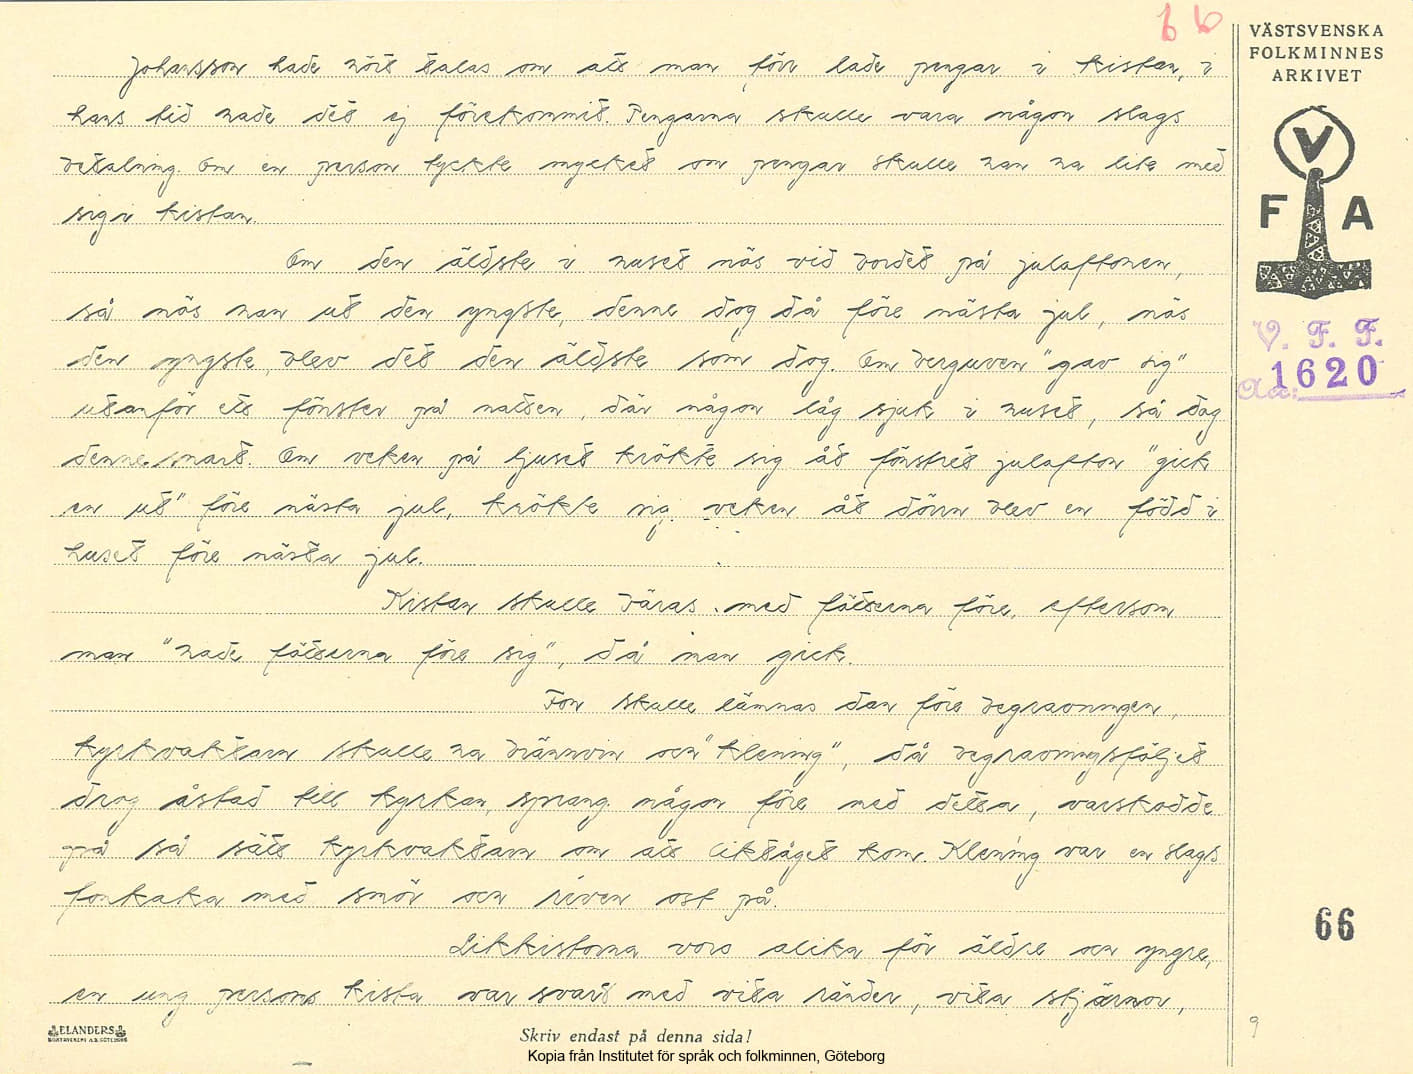 66
VÄSTSVENSKA
FOLKMINNES
ARKIVET
V
F A
V. F. F.
1620
Johansson hade hört talas om att man förr lade pengar i kistan, i
hans tid hade det ej förekommit. Pengarna skulle vara någon slags
betalning. Om en person tyckte mycket om pengar skulle han ha lite med
sig i kistan.
Om den äldste i huset nös vid bordet på julaftonen,
så nös han ut den yngste, denne dog då före nästa jul, nös
den yngste, blev det den äldste som dog. Om berguven "gav sig"
utanför ett fönster på natten, där någon låg sjuk i huset, så dog
denne snart. Om veken på ljuset krökte sig åt fönstret julafton "gick
en ut" före nästa jul, krökte sig veken åt dörrn blev en född i
huset före nästa jul.
Kistan skulle bäras med fötterna före, eftersom
man "hade fötterna före sig", då man gick.
Fon skulle lämnas dan före begravningen,
kyrkvaktarn skulle ha brännvin och "klening", då begravningsföljet
drog åstad till kyrkan, sprang någon före med detta, varskodde
på så sätt kyrkvaktarn om att liktåget kom. Klening var en slags
fonkaka med smör och riven ost på.
Likkistorna voro alika för äldre och yngre,
en ung persons kista var svart med vita ränder, vita stjärnor,
66
9
ELANDERS
Skriv endast på denna sida!
Kopia från Institutet för språk och folkminnen, Göteborg